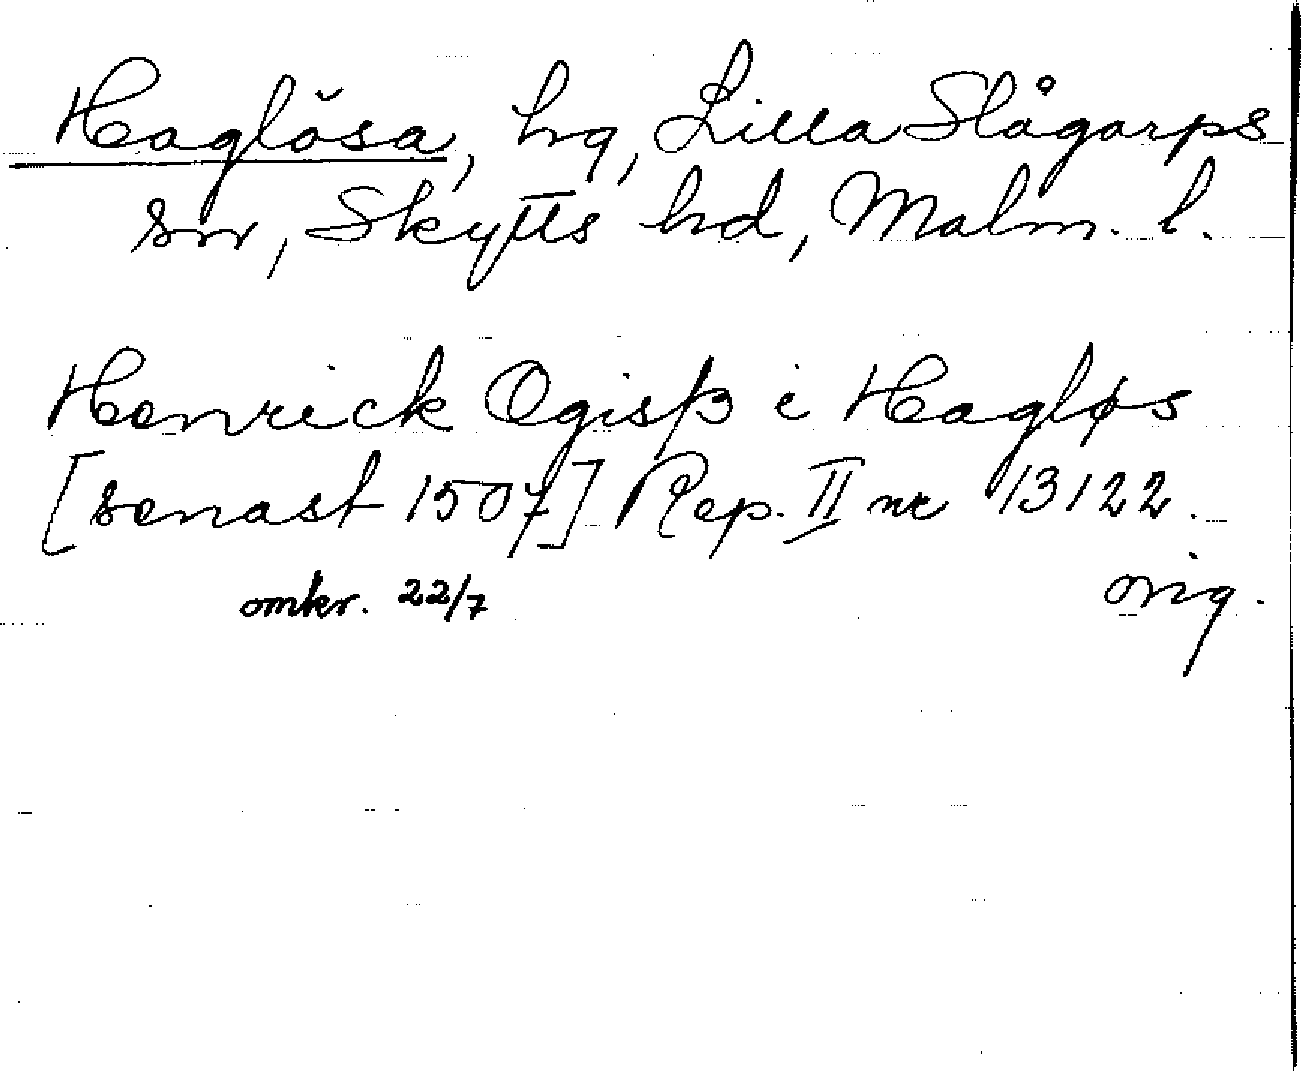 Haglösa, hg, Lilla Slågarps
sn, Skytts hd, Malm. l.
Henrick Ogisß i Hagløs
[senast 1507] Rep. II nr 13122.
omkr. 22/7
orig.